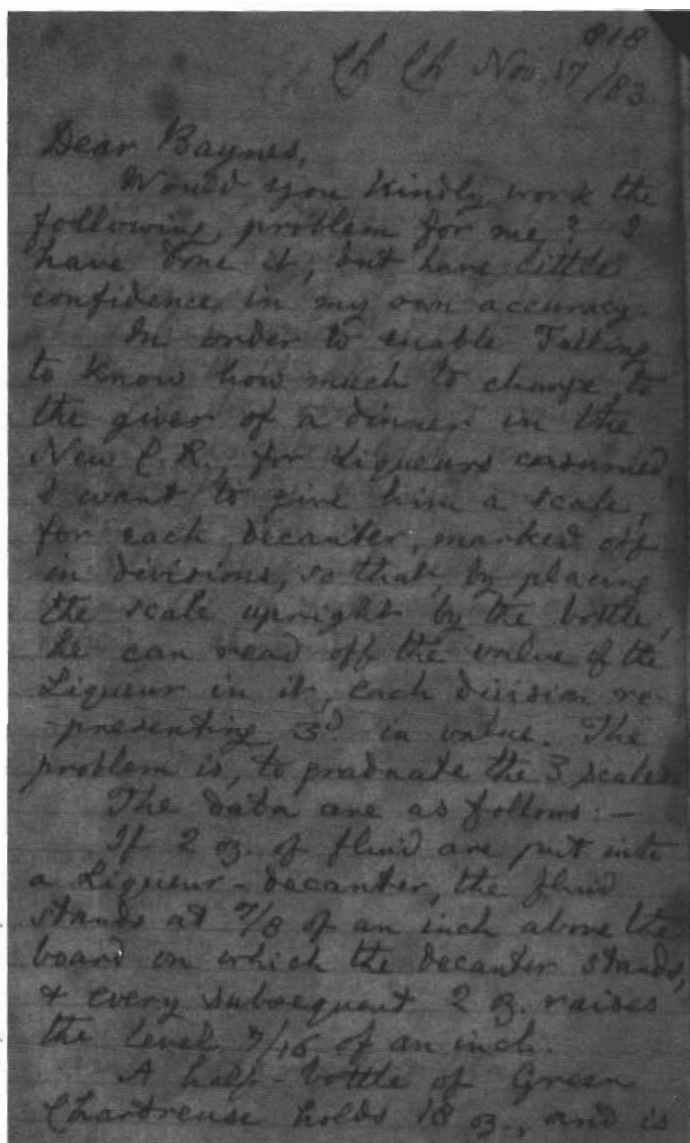 818
Ch Ch Nov. 17/83
Dear Baynes,
Would you kindly work the
following problem for me? I
have done it, but have little
confidence in my own accuracy.
In order to enable Telling
to know how much to charge, to
the giver of a dinner in the
New C.R., for Liqueurs consumed,
I want to give him a scale,
for each decanter, marked off
in divisions, so that, by placing
the scale upright by the bottle,
he can read off the value of the
Liqueur in it, each division re-
-presenting 3d in value. The
problem is, to graduate the 3 scales.
The data are as follows:—
If 2 oz. of fluid are put into
a Liqueur-decanter, the fluid
stands at 7/8 of an inch above the
board on which the decanter stands,
& every subsequent 2 oz. raises
the level 7/16 of an inch.
A half-bottle of Green
Chartreuse holds 18 oz., and is